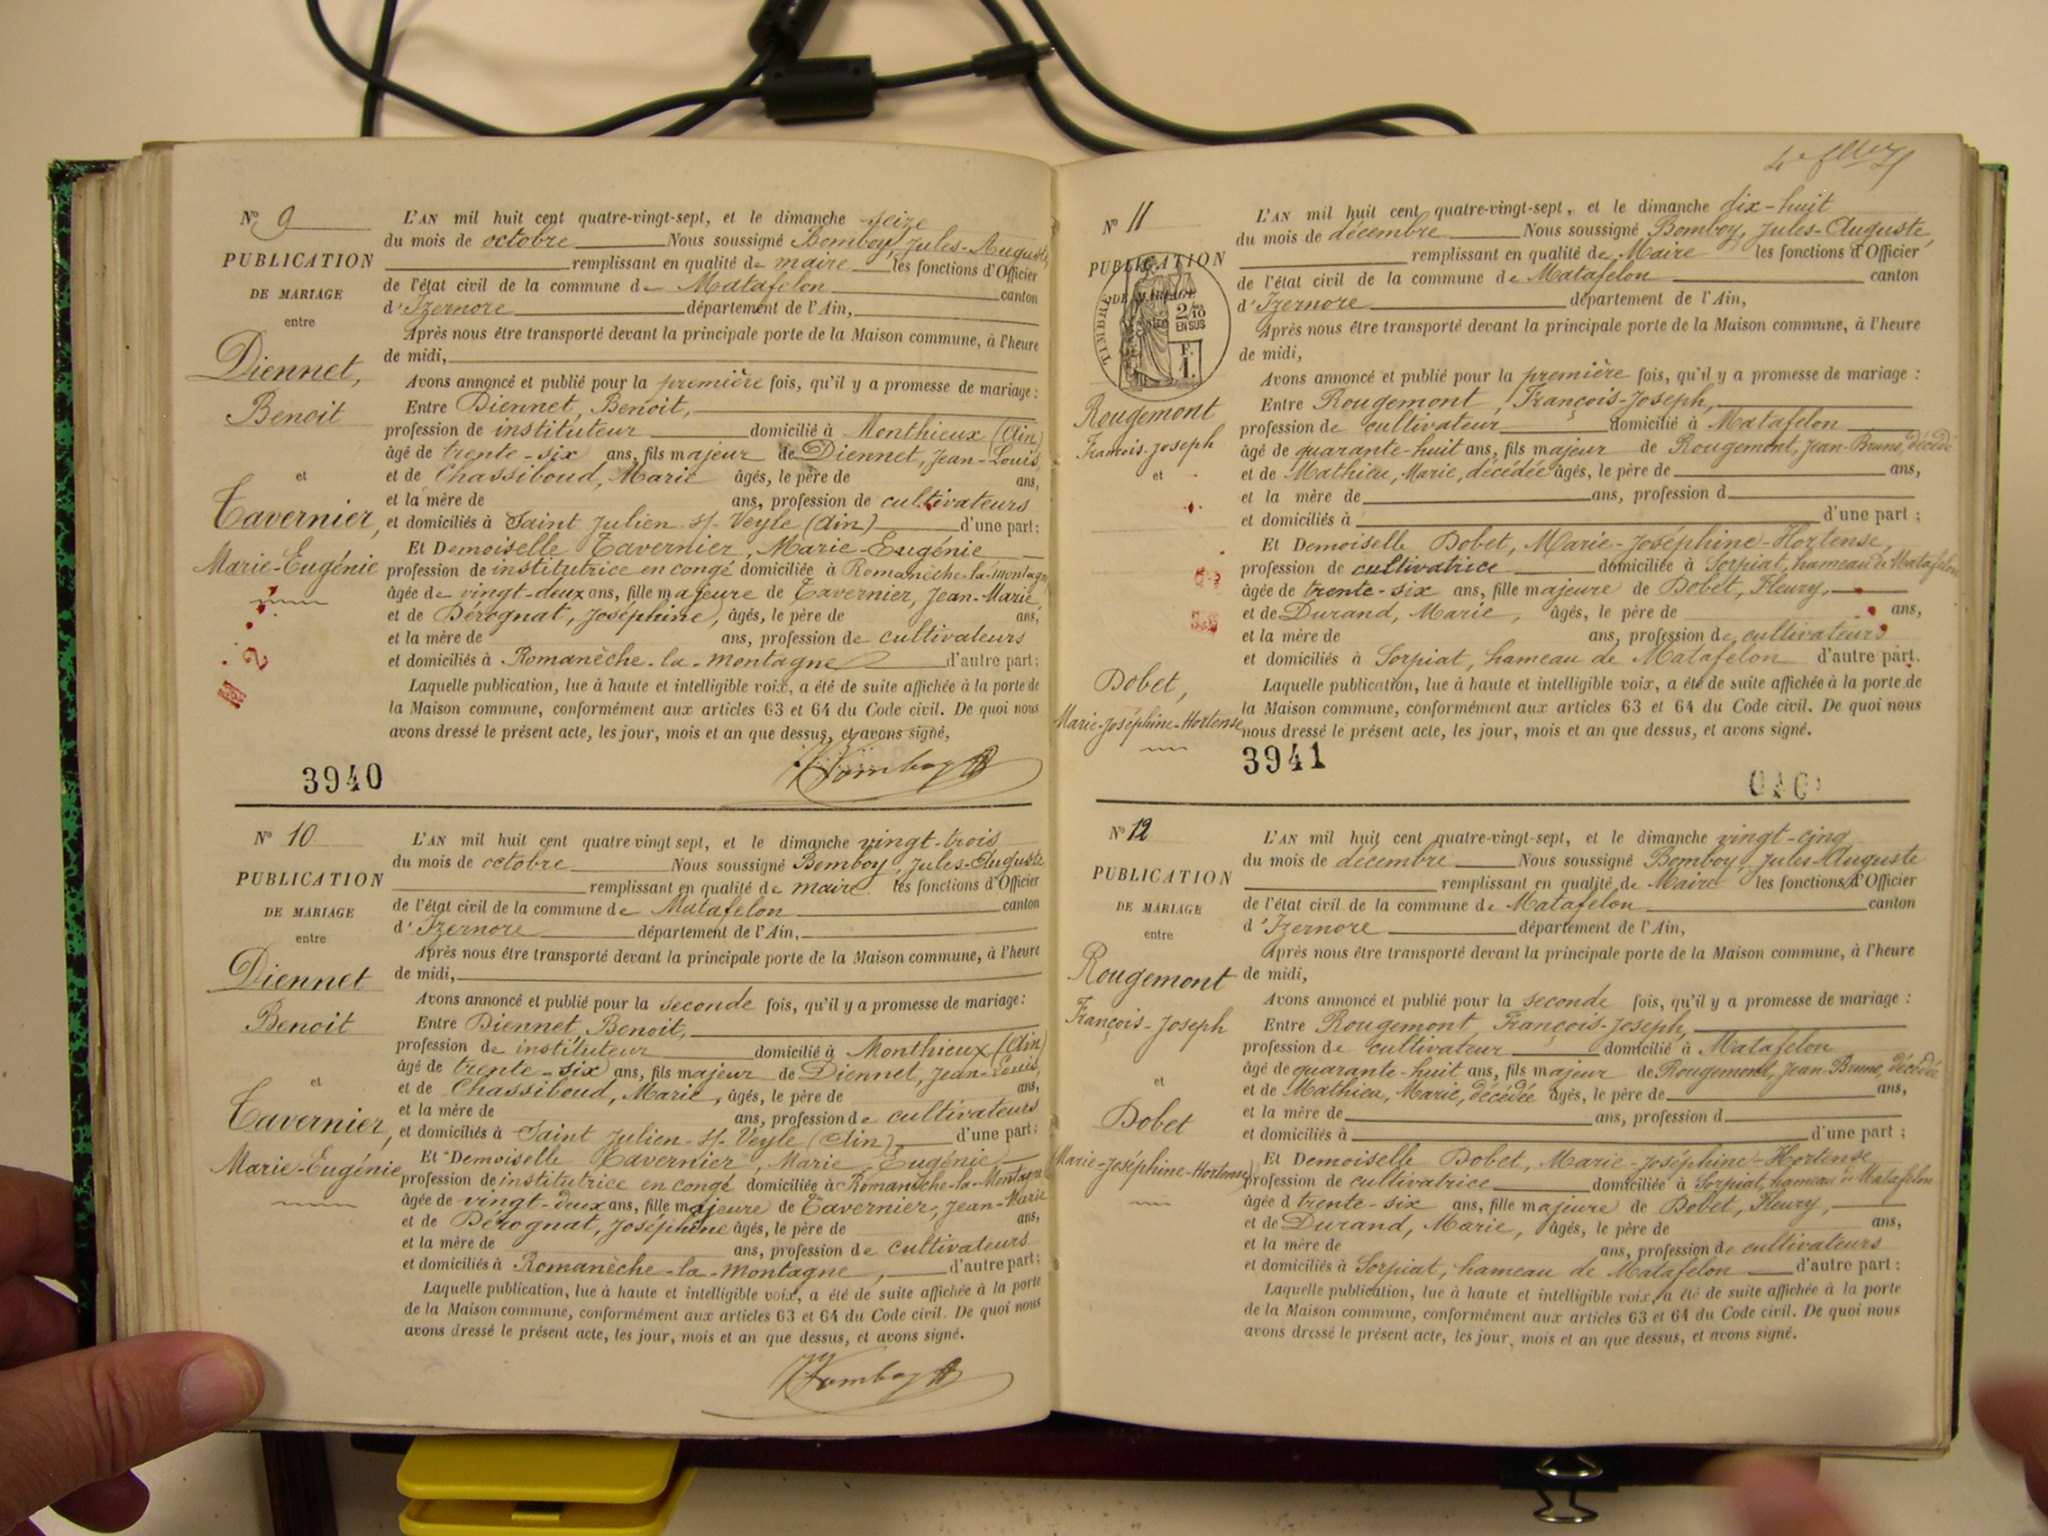 N° 9
PUBLICATION
DE MARIAGE
entre
Diennet,
Benoit
et
Tavernier,
Marie-Eugénie
L'AN mil huit cent quatre-vingt-sept, et le dimanche seize
du mois de octobre Nous soussigné Bomboy, Jules-Auguste,
remplissant en qualité de maire les fonctions d'Officier
de l'état civil de la commune de Matafelon canton
d'Izernore département de l'Ain,
Après nous être transporté devant la principale porte de la Maison commune, à l'heure
de midi,
Avons annoncé et publié pour la première fois, qu'il y a promesse de mariage :
Entre Diennet, Benoit,
profession de instituteur domicilié à Monthieux (Ain)
âgé de trente-six ans, fils majeur de Diennet, Jean-Louis,
et de Chassiboud, Marie âgés, le père de ans,
et la mère de ans, profession de cultivateurs
et domiciliés à Saint Julien s/- Veyle (Ain) d'une part :
Et Demoiselle Tavernier, Marie-Eugénie
profession de institutrice en congé domiciliée à Romanèche-la-montagne
âgée de vingt-deux ans, fille majeure de Tavernier, Jean-Marie,
et de Pérognat, Joséphine, âgés, le père de ans,
et la mère de ans, profession de cultivateurs
et domiciliés à Romanèche-la-montagne d'autre part :
Laquelle publication, lue à haute et intelligible voix, a été de suite affichée à la porte de
la Maison commune, conformément aux articles 63 et 64 du Code civil. De quoi nous
avons dressé le présent acte, les jour, mois et an que dessus, et avons signé,
Bomboy
3940
N° 10
PUBLICATION
DE MARIAGE
entre
Diennet
Benoit
et
Tavernier,
Marie-Eugénie
L'AN mil huit cent quatre-vingt sept, et le dimanche vingt-trois
du mois de octobre Nous soussigné Bomboy, Jules-Auguste
remplissant en qualité de maire les fonctions d'Officier
de l'état civil de la commune de Matafelon canton
d'Izernore département de l'Ain,
Après nous être transporté devant la principale porte de la Maison commune, à l'heure
de midi,
Avons annoncé et publié pour la seconde fois, qu'il y a promesse de mariage :
Entre Diennet, Benoit,
profession de instituteur domicilié à Monthieux (Ain)
âgé de trente-six ans, fils majeur de Diennet, Jean-Louis,
et de Chassiboud, Marie, âgés, le père de ans,
et la mère de ans, profession de cultivateurs
et domiciliés à Saint Julien-s/- Veyle (Ain), d'une part :
Et Demoiselle Tavernier, Marie-Eugénie
profession de institutrice en congé domiciliée à Romanèche-la-Montagne
âgée de vingt-deux ans, fille majeure de Tavernier, Jean-Marie
et de Pérognat, Joséphine âgés, le père de ans,
et la mère de ans, profession de cultivateurs
et domiciliés à Romanèche-la-montagne, d'autre part :
Laquelle publication, lue à haute et intelligible voix, a été de suite affichée à la porte
de la Maison commune, conformément aux articles 63 et 64 du Code civil. De quoi nous
avons dressé le présent acte, les jour, mois et an que dessus, et avons signé.
Bomboy
N° 11
PUBLICATION
DE MARIAGE
TIMBRE
2/10
EN SUS
F.
1.
Rougemont
François-Joseph
et
Dobet,
Marie-Joséphine-Hortense
L'AN mil huit cent quatre-vingt-sept, et le dimanche dix-huit
du mois de décembre Nous soussigné Bomboy, Jules-Auguste,
remplissant en qualité de Maire les fonctions d'Officier
de l'état civil de la commune de Matafelon canton
d'Izernore département de l'Ain,
Après nous être transporté devant la principale porte de la Maison commune, à l'heure
de midi,
Avons annoncé et publié pour la première fois, qu'il y a promesse de mariage :
Entre Rougemont, François-Joseph,
profession de cultivateur domicilié à Matafelon
âgé de quarante-huit ans, fils majeur de Rougemont, Jean-Bruno, décédé
et de Mathieu, Marie, décédée âgés, le père de ans,
et la mère de ans, profession d
et domiciliés à d'une part ;
Et Demoiselle Dobet, Marie-Joséphine-Hortense,
profession de cultivatrice domiciliée à Sorpiat, hameau de Matafelon
âgée de trente-six ans, fille majeure de Dobet, Fleury,
et de Durand, Marie, âgés, le père de ans,
et la mère de ans, profession de cultivateurs
et domiciliés à Sorpiat, hameau de Matafelon d'autre part.
Laquelle publication, lue à haute et intelligible voix, a été de suite affichée à la porte de
la Maison commune, conformément aux articles 63 et 64 du Code civil. De quoi nous
nous dressé le présent acte, les jour, mois et an que dessus, et avons signé.
3941
N° 12
PUBLICATION
DE MARIAGE
entre
Rougemont
François-Joseph
et
Dobet
Marie-Joséphine-Hortense
L'AN mil huit cent quatre-vingt-sept, et le dimanche vingt-cinq
du mois de décembre Nous soussigné Bomboy, Jules-Auguste
remplissant en qualité de Maire les fonctions d'Officier
de l'état civil de la commune de Matafelon canton
d'Izernore département de l'Ain,
Après nous être transporté devant la principale porte de la Maison commune, à l'heure
de midi,
Avons annoncé et publié pour la seconde fois, qu'il y a promesse de mariage :
Entre Rougemont, François-Joseph,
profession de cultivateur domicilié à Matafelon
âgé de quarante-huit ans, fils majeur de Rougemont, Jean-Bruno, décédé
et de Mathieu, Marie, décédée âgés, le père de ans,
et la mère de ans, profession d
et domiciliés à d'une part ;
Et Demoiselle Dobet, Marie-Joséphine-Hortense
profession de cultivatrice domiciliée à Sorpiat, hameau de Matafelon
âgée d trente-six ans, fille majeure de Dobet, Fleury,
et de Durand, Marie, âgés, le père de ans,
et la mère de ans, profession de cultivateurs
et domiciliés à Sorpiat, hameau de Matafelon d'autre part :
Laquelle publication, lue à haute et intelligible voix, a été de suite affichée à la porte
de la Maison commune, conformément aux articles 63 et 64 du Code civil. De quoi nous
avons dressé le présent acte, les jour, mois et an que dessus, et avons signé.